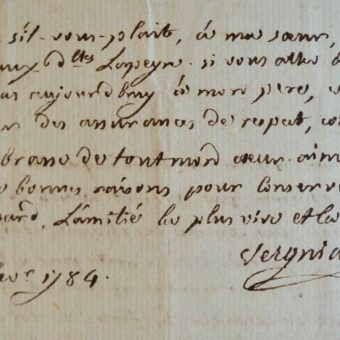 s'il-vous-plait, à ma sœur,
aux 6 dlles Lapeyre. si vous
pas aujourdhuy à mon pere,
des assurances de respect,
brasse de tout mon cœur. aim
bonnes raisons pour conserve
L'amitié la plus vive et la
Vergnia
1784.